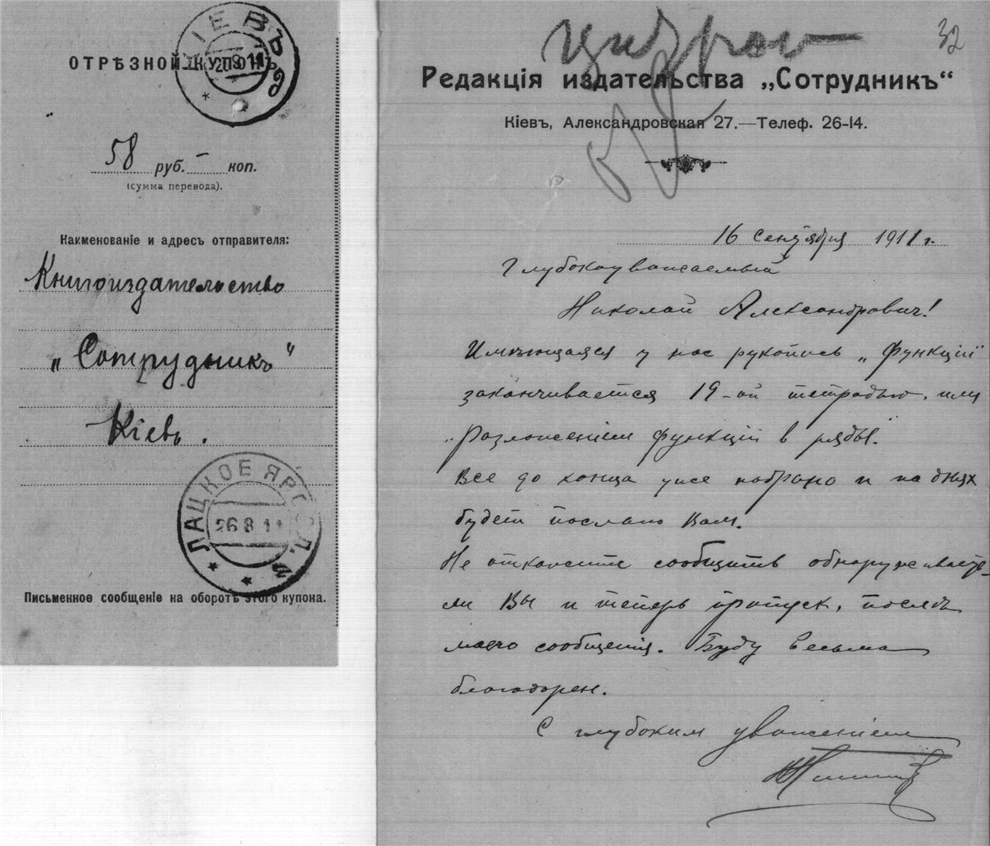 ОТРѢЗНОЙ КУПОНЪ
КІЕВЪ
20 8 11
58 руб. – коп.
(сумма перевода).
Наименованіе и адресъ отправителя:
Книгоиздательство
„Сотрудникъ"
Кіевъ.
ЛАЦКОЕ ЯРОСЛ.
26 8 11
Письменное сообщеніе на оборотѣ этого купона.
32
Редакція издательства „Сотрудникъ"
Кіевъ, Александровская 27.—Телеф. 26-14.
16 сентября 1911 г.
Глубокоуважаемый
Николай Александрович!
Имѣющаяся у нас рукопись „Функціи"
заканчивается 19-ой тетрадью, или
„Разложеніем функцій в ряды".
Все до конца уже набрано и на днях
будет послано Вам.
Не откажите сообщить обнаруживаете-
ли Вы и теперь пропуск, послѣ
моего сообщенія. Буду весьма
благодарен.
С глубоким уваженіем